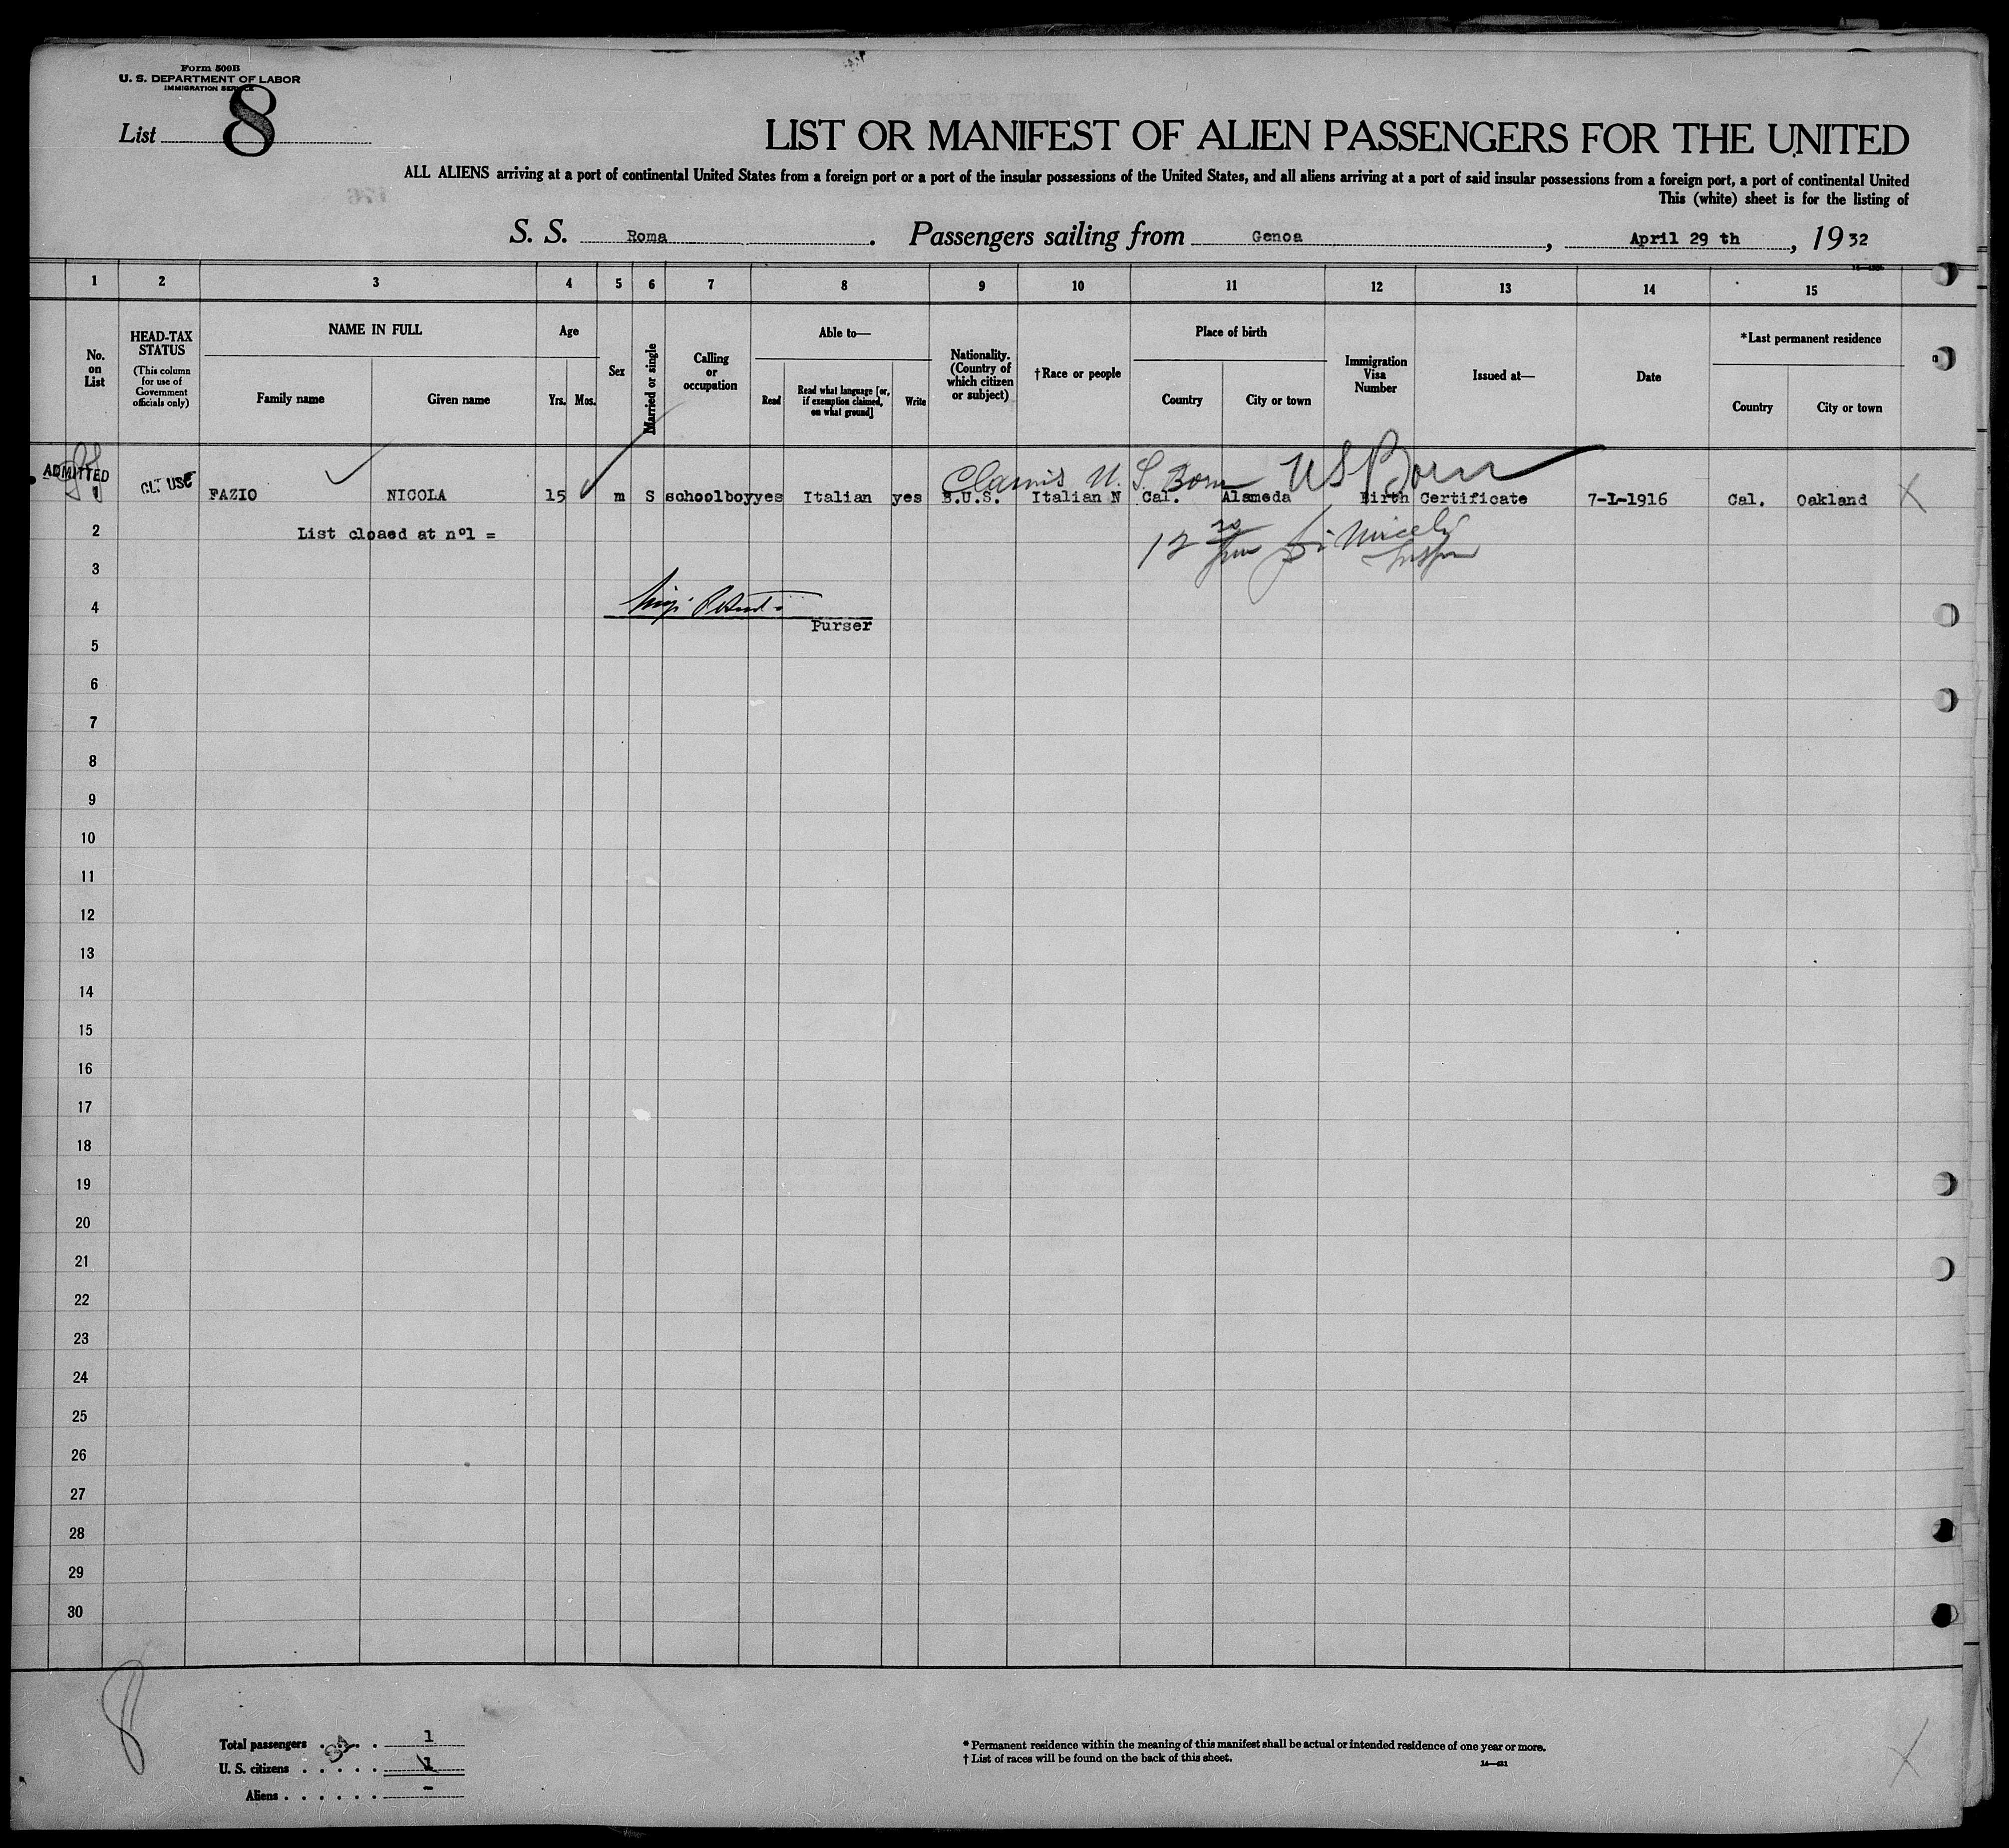 Form 500B
U. S. DEPARTMENT OF LABOR
IMMIGRATION SERVICE
List 8
LIST OR MANIFEST OF ALIEN PASSENGERS FOR THE UNITED
ALL ALIENS arriving at a port of continental United States from a foreign port or a port of the insular possessions of the United States, and all aliens arriving at a port of said insular possessions from a foreign port, a port of continental United
This (white) sheet is for the listing of
S. S. Roma. Passengers sailing from Genoa, April 29 th, 1932
1 2 3 4 5 6 7 8 9 10 11 12 13 14 15
No. on List
HEAD-TAX STATUS
(This column for use of Government officials only)
NAME IN FULL
Family name Given name
Age
Yrs. Mos.
Sex
Married or single
Calling or occupation
Able to—
Read
Read what language [or, if exemption claimed, on what ground]
Write
Nationality. (Country of which citizen or subject)
†Race or people
Place of birth
Country City or town
Immigration Visa Number
Issued at—
Date
*Last permanent residence
Country City or town
ADMITTED
Claims U. S. Born US Born
1 FAZIO NICOLA 15 m S schoolboy yes Italian yes S.U.S. Italian N Cal. Alameda Birth Certificate 7-I-1916 Cal. Oakland X
2 List closed at nº1 =
12
3
4
Purser
5
6
7
8
9
10
11
12
13
14
15
16
17
18
19
20
21
22
23
24
25
26
27
28
29
30
8
Total passengers . . . . 1
U. S. citizens . . . . . 1
Aliens . . . . . . -
* Permanent residence within the meaning of this manifest shall be actual or intended residence of one year or more.
† List of races will be found on the back of this sheet.
X